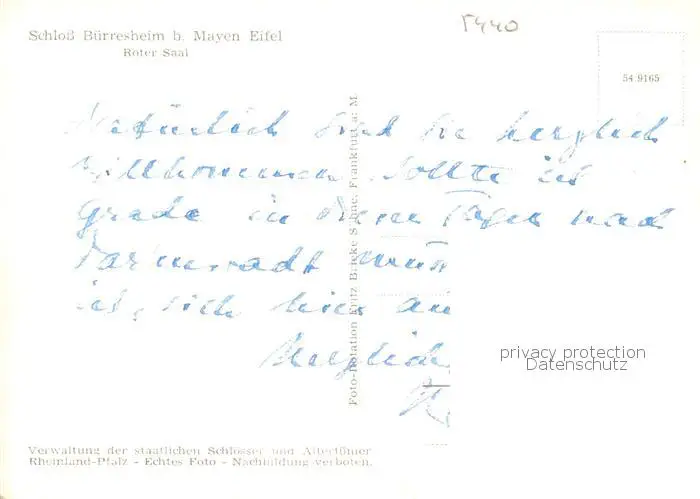 Schloß Bürresheim b. Mayen Eifel
Roter Saal
5440
54 9165
Natürlich sind Sie herzlich
Willkommen. Sollte ich
grade in diesen Tagen nach
Darmstadt
ich, sich hier an
Herzlich
Foto-Rotation Fritz Braicke Söhne, Frankfurt a. M.
privacy protection
Datenschutz
Verwaltung der staatlichen Schlösser und Altertümer
Rheinland-Pfalz - Echtes Foto - Nachbildung verboten.